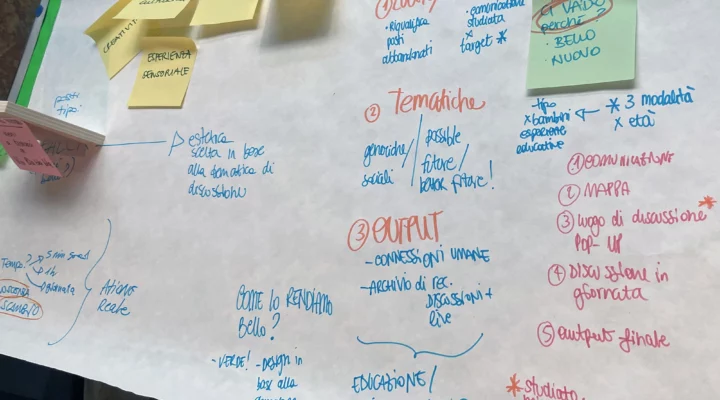 CREATIVIT
ESPERIENZA
SENSORIALE
posti
tipo:
estetica
scelta in base
alla tematica di
discussione
①
• Riqualifica
posti
abbandonati
• comunicazione
studiata
x
target *
② Tematiche
generiche/
sociali
possible
future/
better future!
③ OUTPUT
- CONNESSIONI UMANE
- ARCHIVIO di rec.
DISCUSSIONI +
live
EDUCAZIONE/
CI VADO
perché
• BELLO
• NUOVO
tipo
x bambini
esperienze
educative
* 3 modalità
x età
① COMUNICAZIONE
② MAPPA
③ luogo di discussione *
POP-UP
④ DISCUSSIONE in
giornata
⑤ output finale
* studiato
Tempo?
5 min
1h
1 giornata
SCAMBIO
Attimo
Reale
COME lo RENDIAMO
Bello?
- VERDE!
- Design in
basi alla